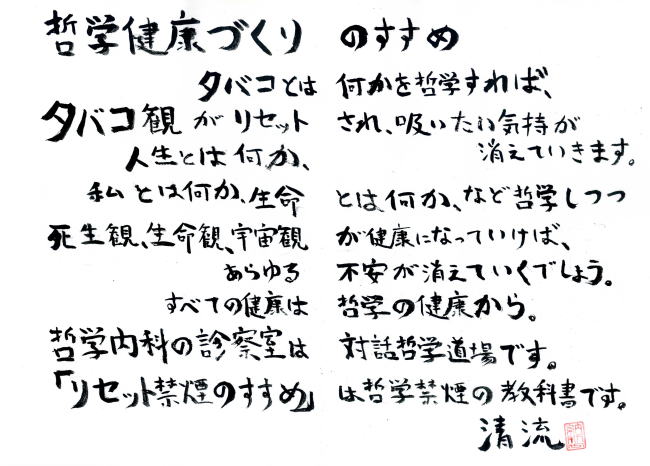 哲学健康づくり のすすめ
タバコとは 何かを哲学すれば、
タバコ観がリセット され、吸いたい気持が
消えていきます。
人生とは何か、
私とは何か、生命 とは何か、など哲学しつつ
死生観、生命観、宇宙観 が健康になっていけば、
あらゆる 不安が消えていくでしょう。
すべての健康は 哲学の健康から。
哲学内科の診察室は 対話哲学道場です。
「リセット禁煙のすすめ」 は哲学禁煙の教科書です。
清流